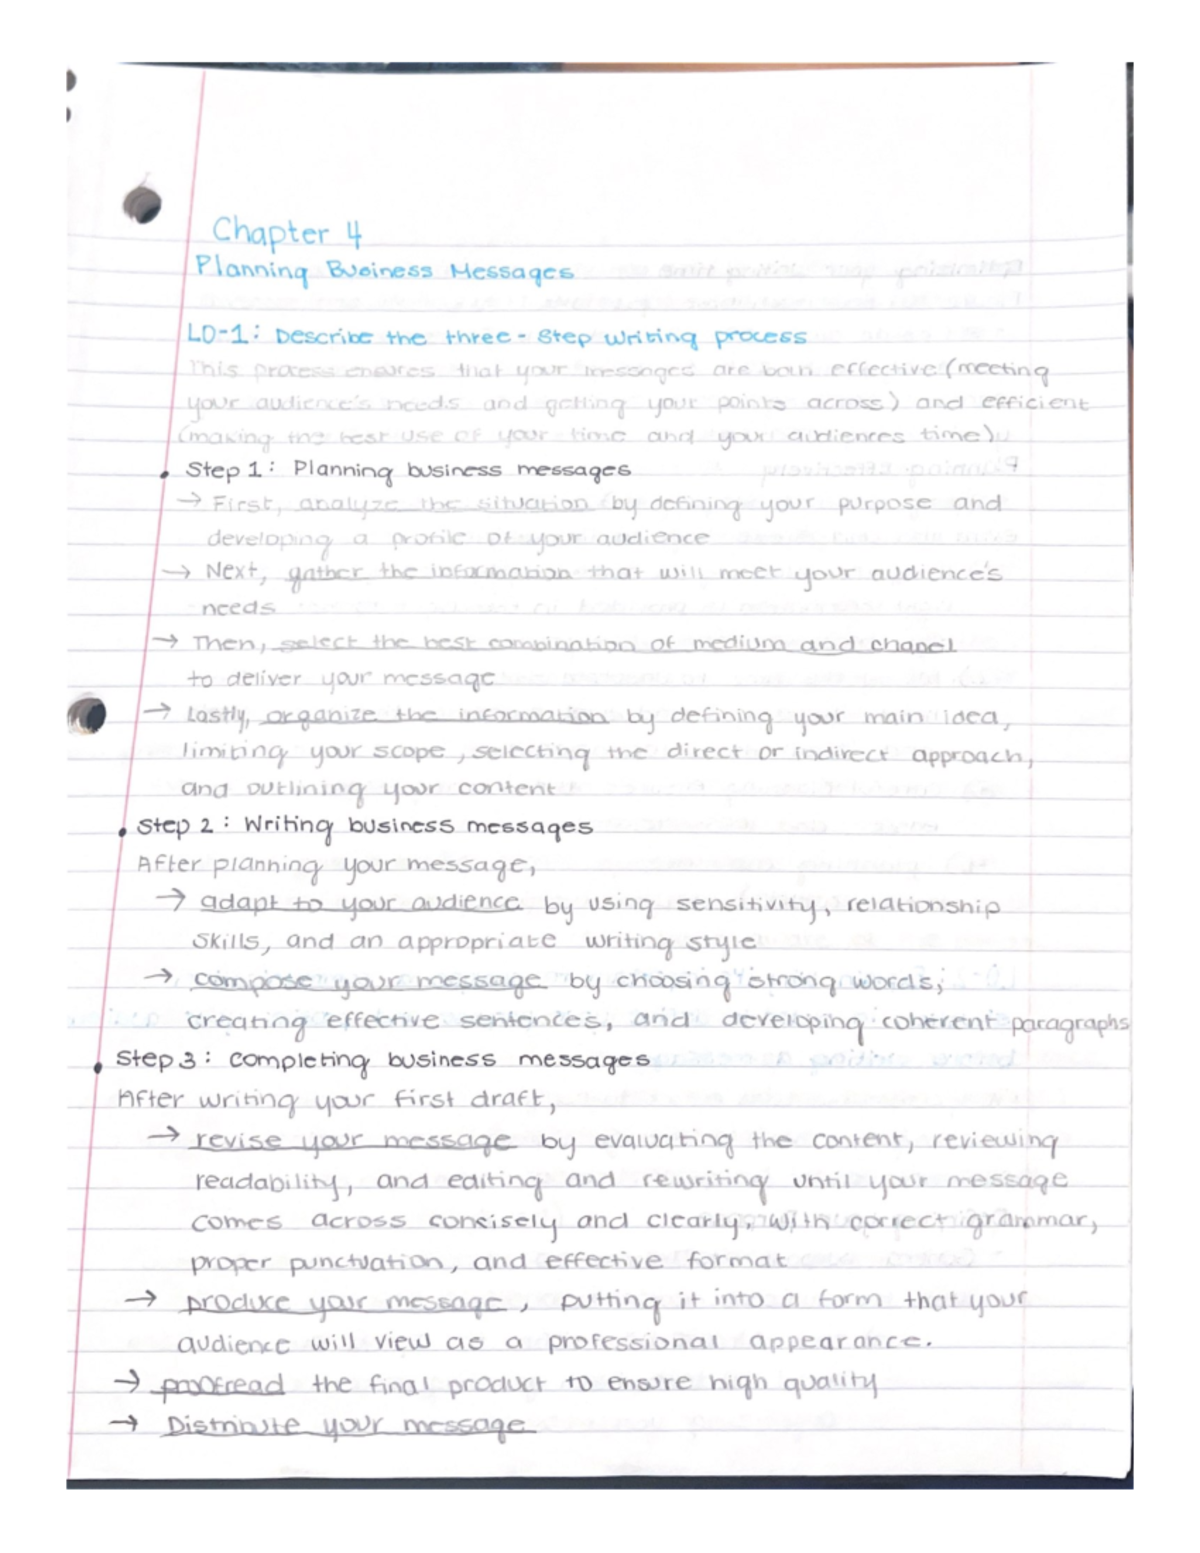 Chapter 4
Planning Business Messages
LO-1: Describe the three-Step writing process
This process ensures that your messages are both effective (meeting
your audience's needs and getting your points across) and efficient
(making the best use of your time and your audiences time).
• Step 1: Planning business messages
→ First, analyze the situation by defining your purpose and
developing a profile of your audience
→ Next, gather the information that will meet your audience's
needs
→ Then, select the best combination of medium and chanel
to deliver your message
→ Lastly, organize the information by defining your main idea,
limiting your scope, selecting the direct or indirect approach,
and outlining your content
• Step 2: Writing business messages
After planning your message,
→ adapt to your audience by using sensitivity, relationship
skills, and an appropriate writing style
→ compose your message by choosing strong words,
creating effective sentences, and developing coherent paragraphs
• Step 3: Completing business messages
After writing your first draft,
→ revise your message by evaluating the content, reviewing
readability, and editing and rewriting until your message
comes across concisely and clearly, with correct grammar,
proper punctuation, and effective format
→ produce your message, putting it into a form that your
audience will view as a professional appearance.
→ proofread the final product to ensure high quality
→ Distribute your message